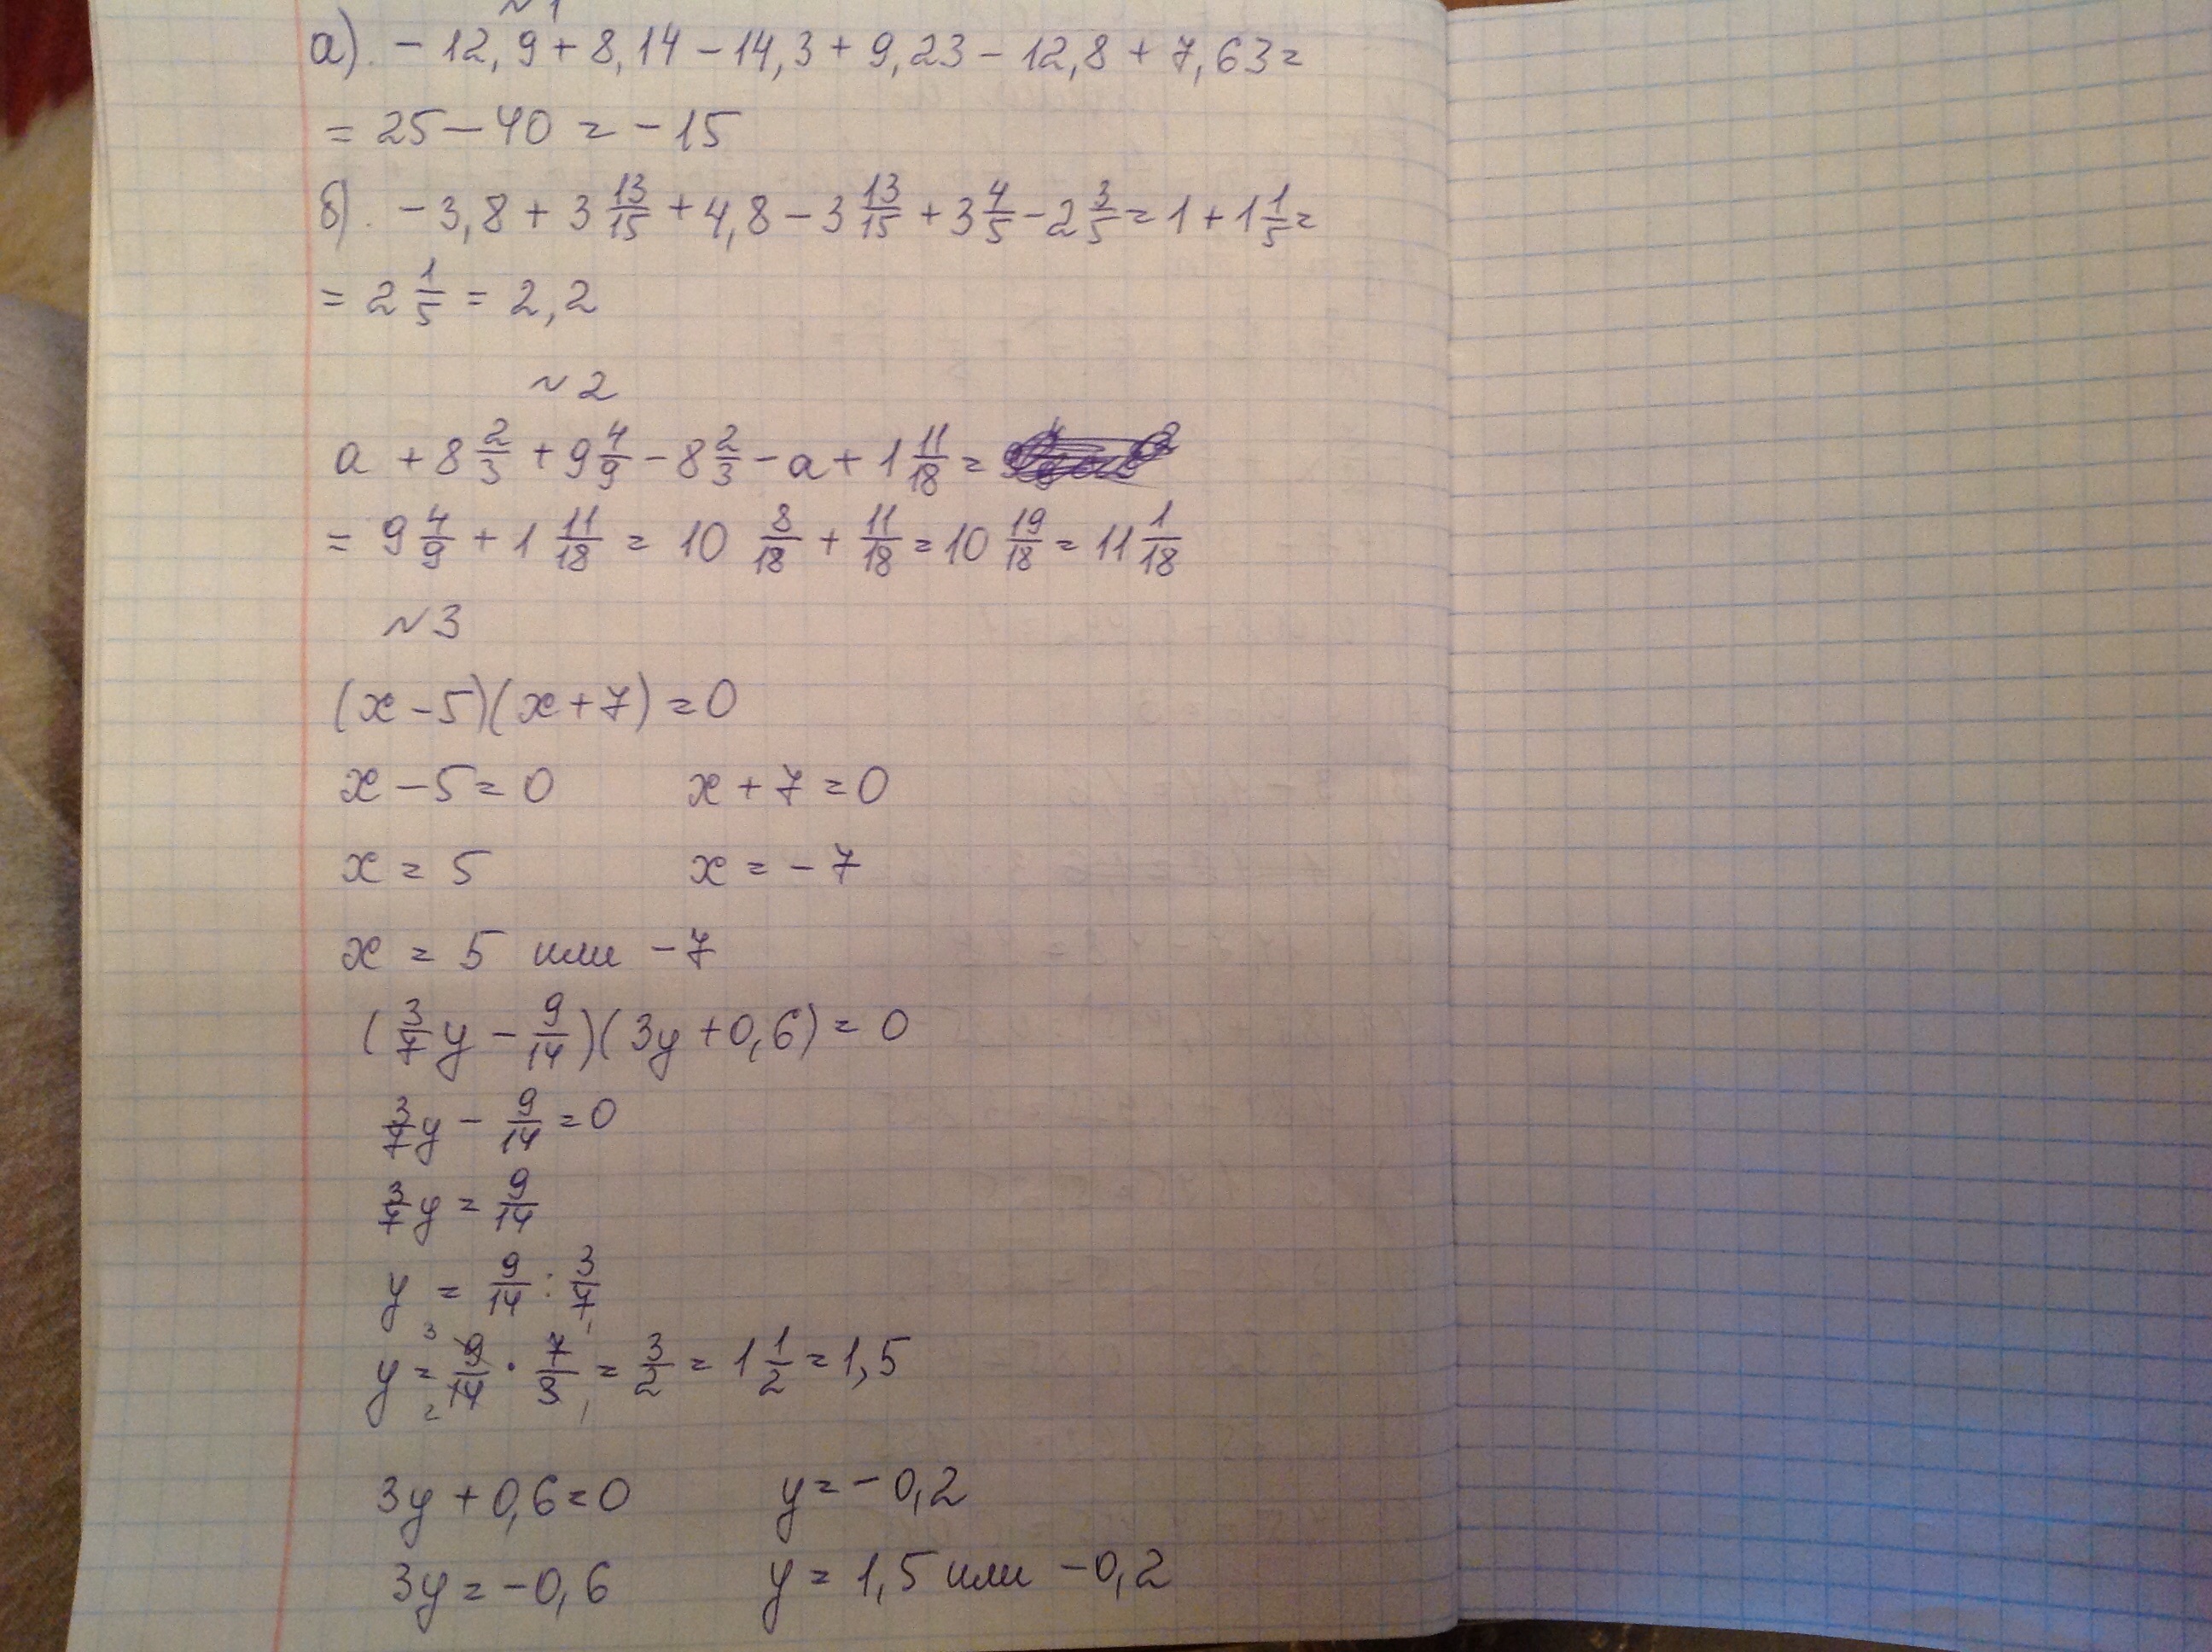 №1
а). - 12,9 + 8,14 - 14,3 + 9,23 - 12,8 + 7,63 =
= 25 - 40 = - 15
б). - 3,8 + 3 13/15 + 4,8 - 3 13/15 + 3 4/5 - 2 3/5 = 1 + 1 1/5 =
= 2 1/5 = 2,2
№2
а + 8 2/3 + 9 4/9 - 8 2/3 - а + 1 11/18 =
= 9 4/9 + 1 11/18 = 10 8/18 + 11/18 = 10 19/18 = 11 1/18
№3
(x - 5)(x + 7) = 0
x - 5 = 0 x + 7 = 0
x = 5 x = - 7
x = 5 или - 7
(3/7 y - 9/14)(3y + 0,6) = 0
3/7 y - 9/14 = 0
3/7 y = 9/14
y = 9/14 : 3/7
y = 9/14 · 7/3 = 3/2 = 1 1/2 = 1,5
3y + 0,6 = 0 y = - 0,2
3y = - 0,6 y = 1,5 или - 0,2